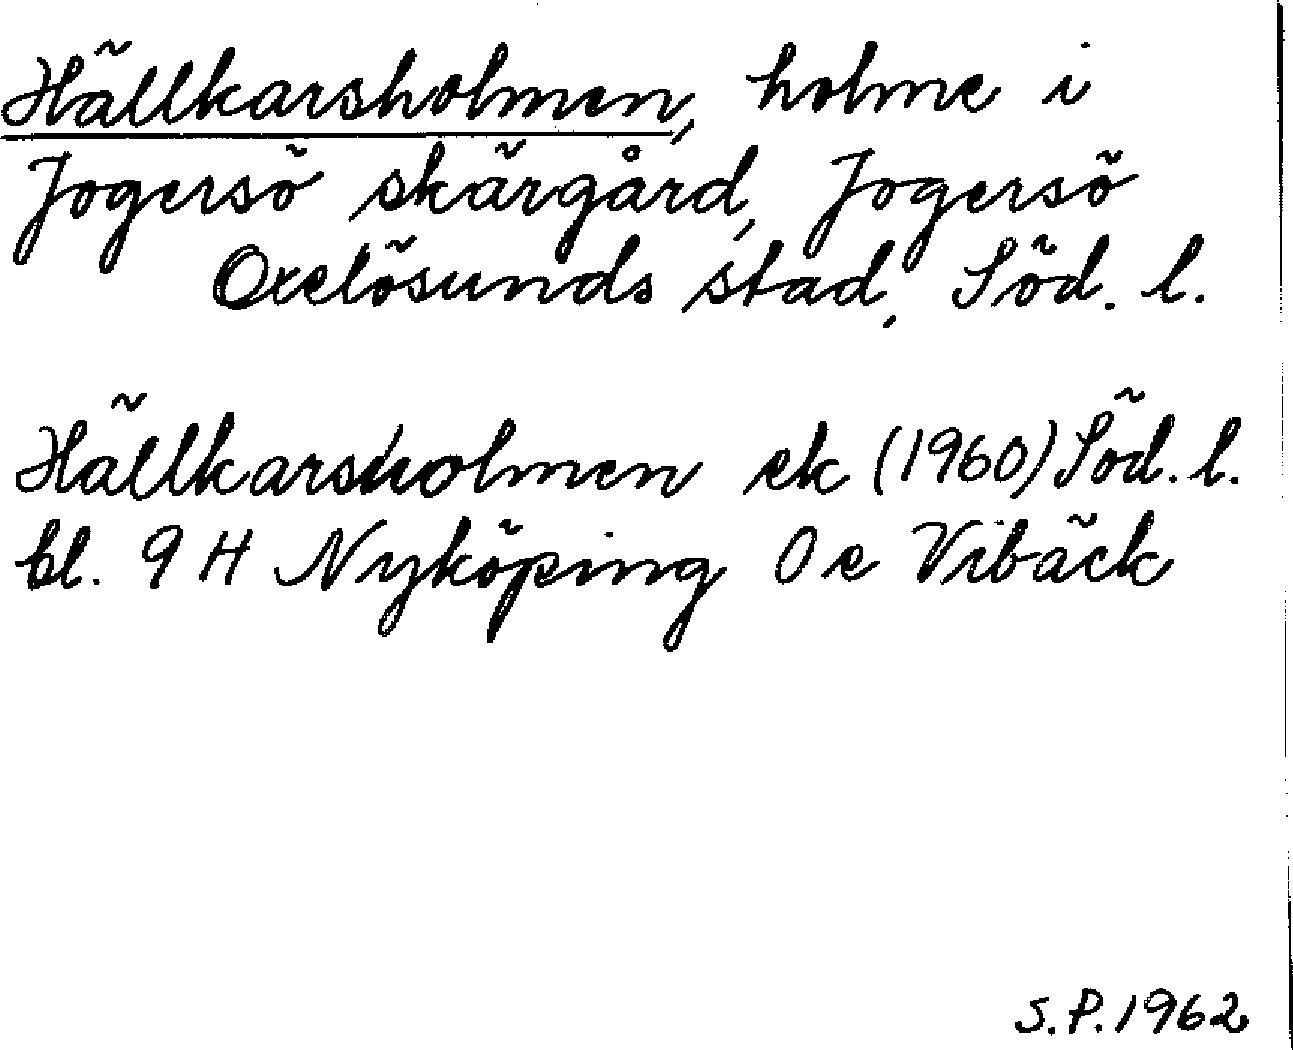 Hällkarsholmen, holme i
Jogersö skärgård, Jogersö
Oxelösunds stad, Söd. l.
Hällkarsholmen ek (1960) Söd. l.
bl. 9 H Nyköping 0 e Vibäck
S.P. 1962